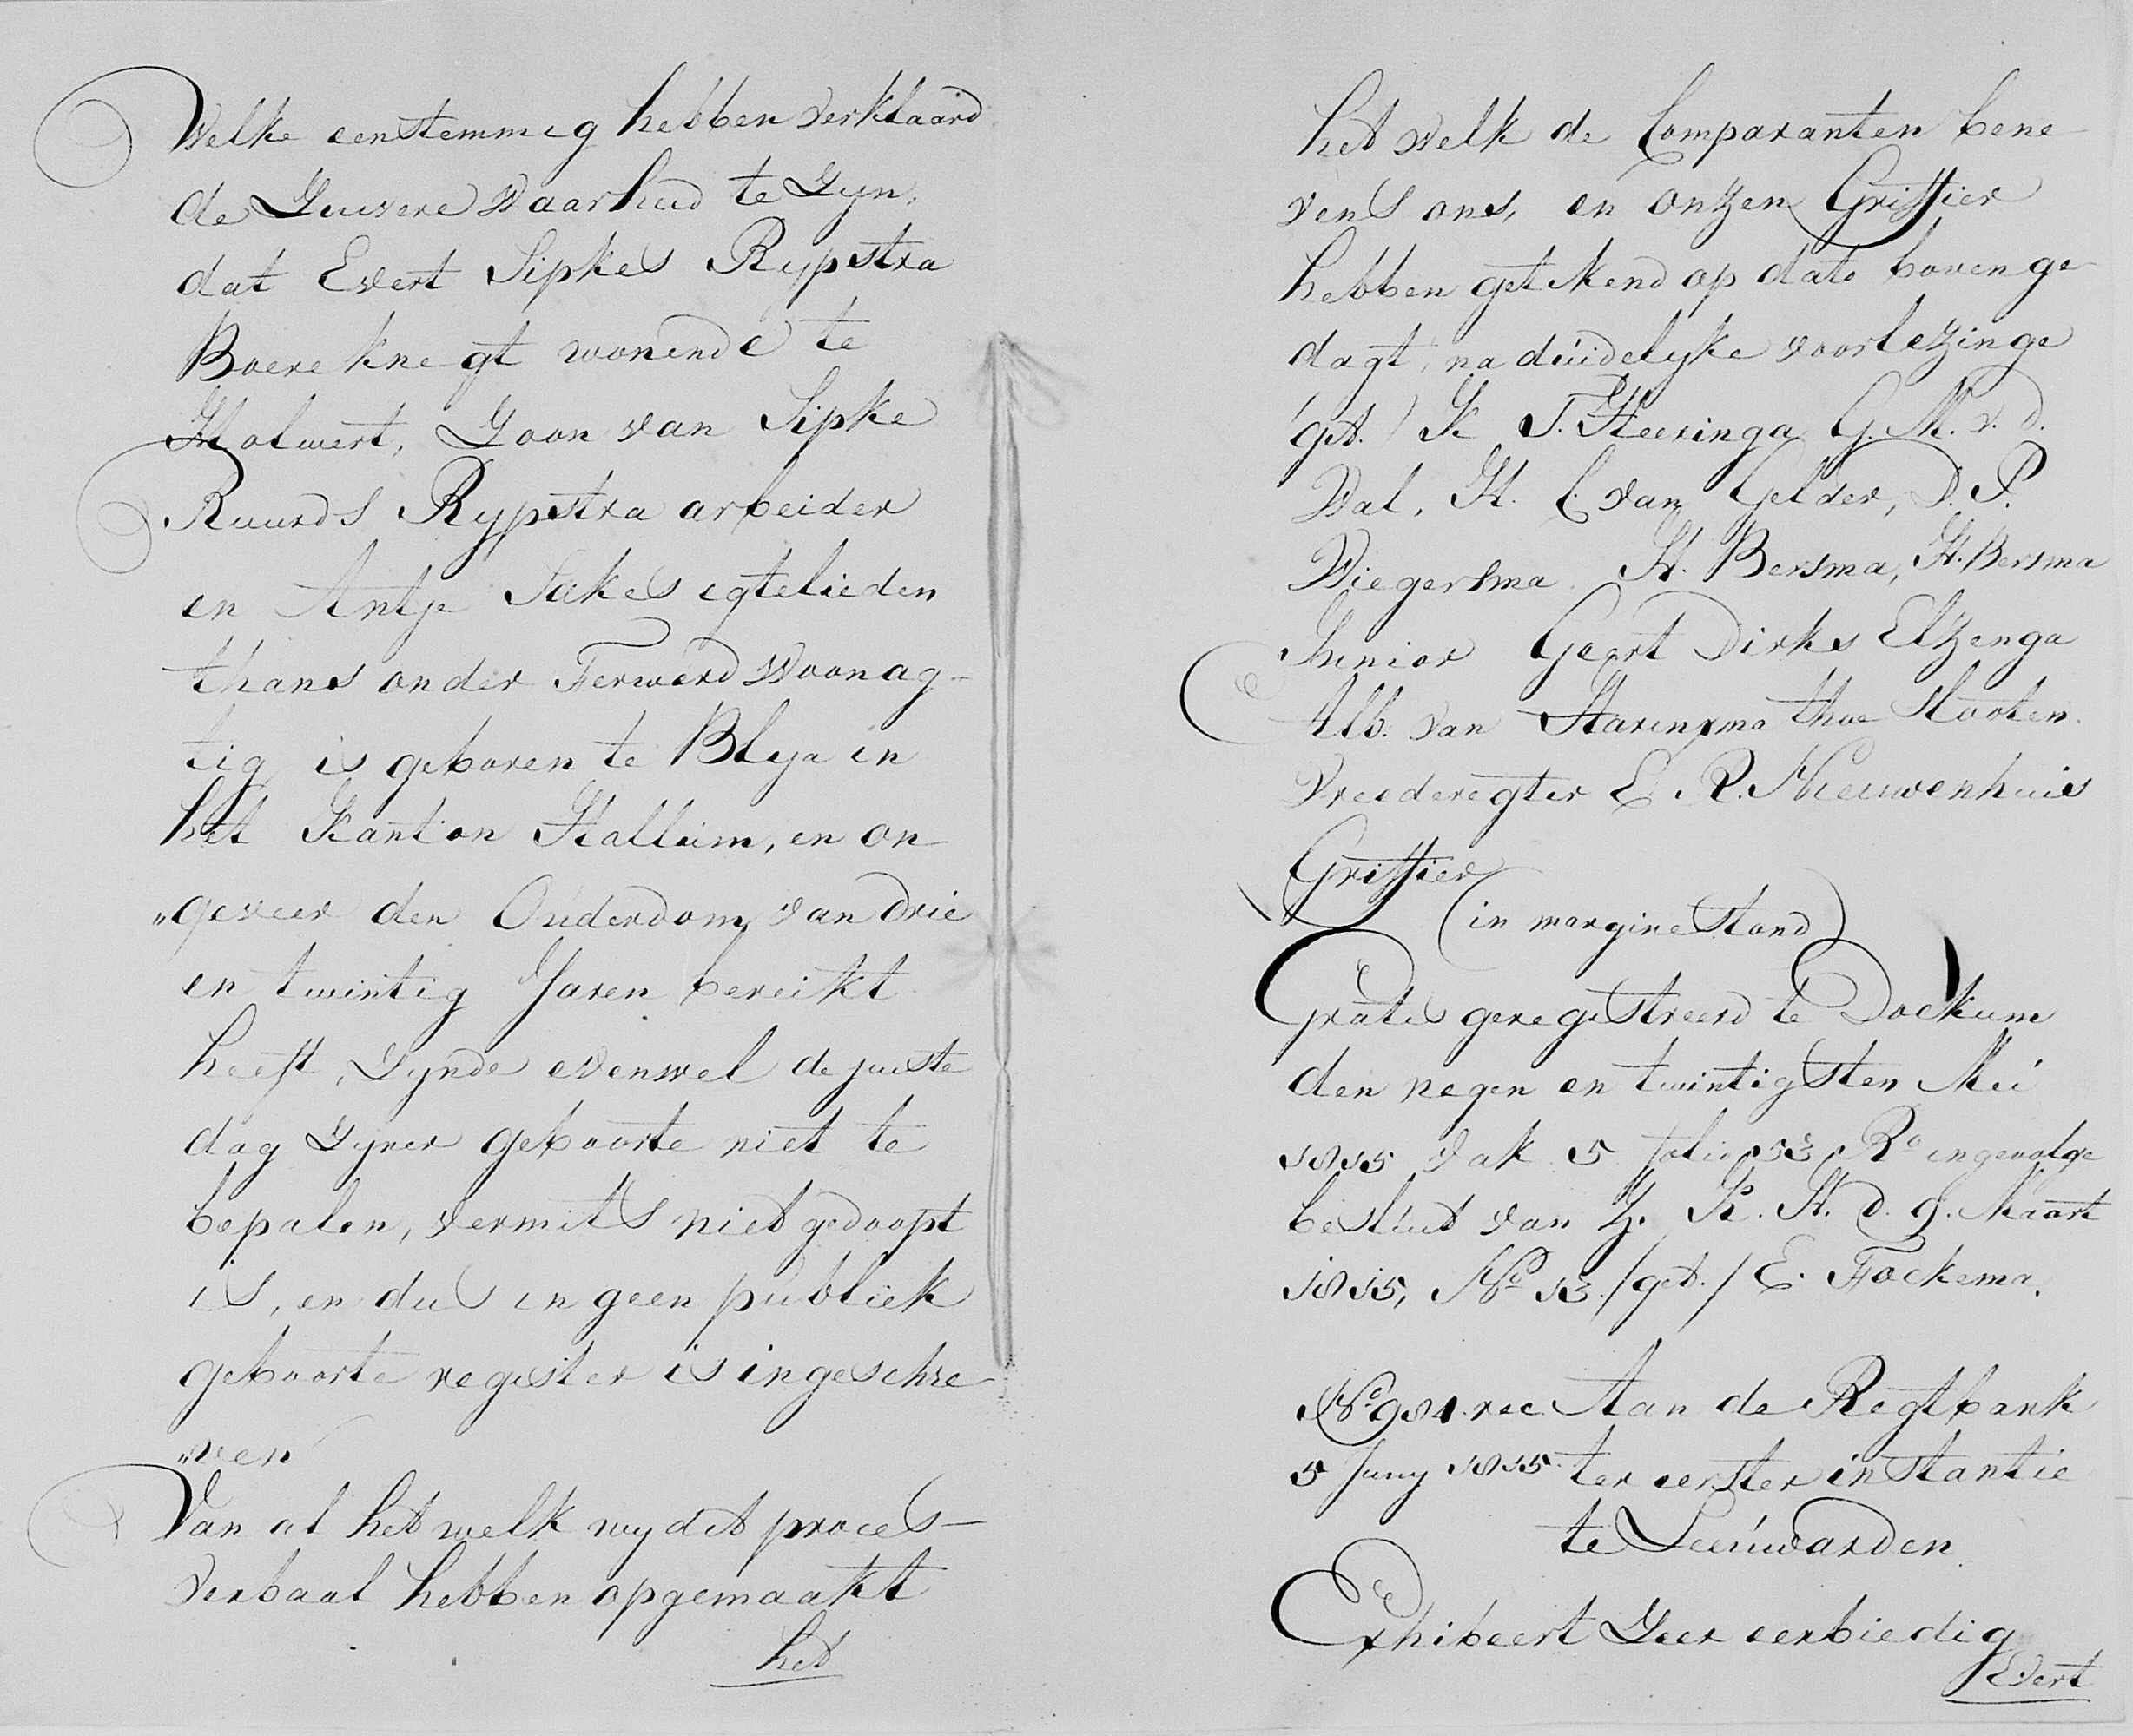 Welke eenstemmig hebben verklaard
de Zuivere Waarheid te Zyn,
dat Evert Sipkes Rypstra
Boere knegt wonende te
Holwert, Zoon van Sipke
Ruurds Rypstra arbeider
en Antje Sakes egtelieden
thans onder Ferwerd Woonag-
tig is geboren te Blya in
het Kanton Hallum, en on
„geveer den Ouderdom van drie
en twintig Jaren bereikt
heeft, Zynde evenwel de juiste
dag Zyner geboorte niet te
bepalen, vermits niet gedoopt
is, en dus in geen publiek
geboorte register is ingeschre
„ven
Van al het welk wy dit proces-
verbaal hebben opgemaakt
het
het welk de Comparanten bene
vens ons, en onzen Griffier
hebben getekend op dato bovenge
dagt, na duidelyke voorlezinge
(get.) K T. Heeringa G. M. v. d.
Wal, H. C. van Gelder, D. P.
Wiegersma H. Bersma, H. Bersma
Junior Geert Dirks Elzenga
Alb. van Harinxma thoe Slooten
Vrederegter E. R. Nieuwenhuis
Griffier
(in margine Stond)
Gratis geregistreerd te Dockum
den negen en twintigsten Mei
1815 Vak 5 folio 133 Ro ingevolge
besluit van Z. K. H. d. 9. Maart
1815, No 13. /get./ E. Fockema.
No 981 rec Aan de Regtbank
5 Juny 1815 ter eerster instantie
te Leeuwarden
Exhibeert Zeer eerbiedig
Evert